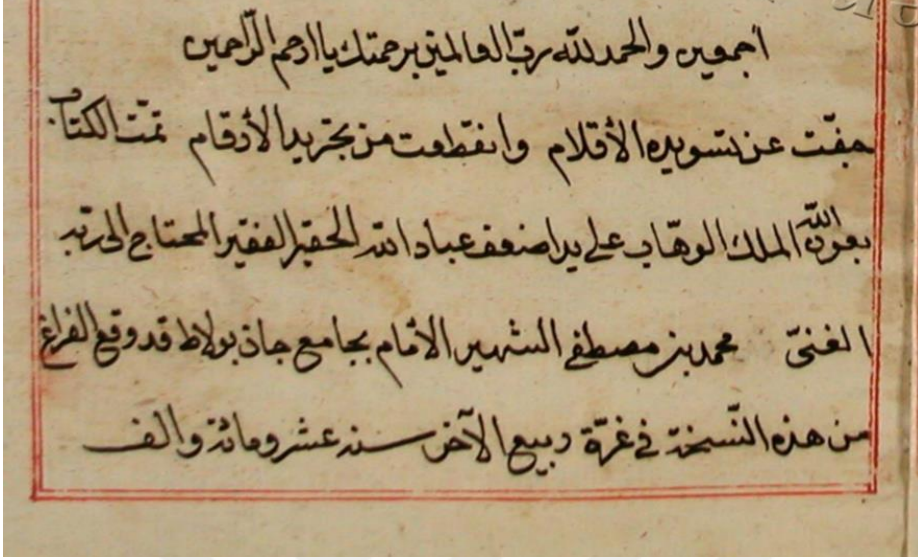 أجمعين والحمد لله ربّ العالمين برحمتك يا ارحم الرّاحمين
جفّت عن تسويده الأقلام وانقطعت من تجريد الأرقام تمّت الكتاب
بعون الله الملك الوهّاب على يد اضعف عباد الله الحقير الفقير المحتاج الى ربّه
الغنىّ محمد بن مصطفى الشهير الأمام بجامع جان بولاط قد وقع الفراغ
من هذه النّسخة في غرّة ربيع الآخر سنة عشر ومائة والف